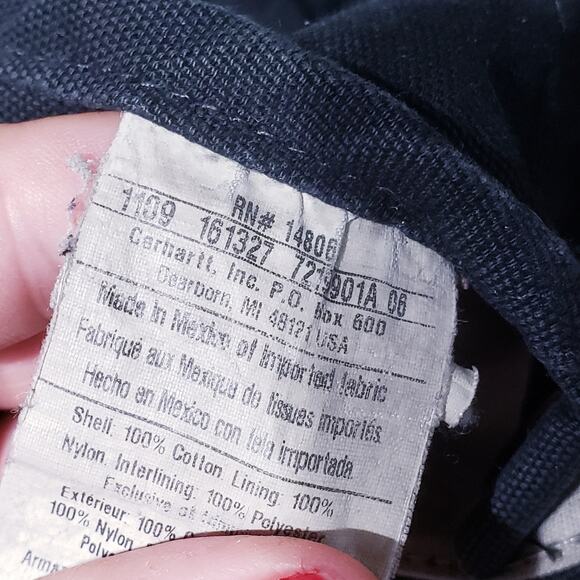 RN# 14806
1109 161327 721901A 06
Carhartt, Inc. P.O. Box 600
Dearborn, MI 48121 USA
Made in Mexico of imported fabric
Fabriqué aux Mexique de tissues importés
Hecho en Mexico con tela importada.
Shell: 100% Cotton, Lining: 100%
Nylon, Interlining: 100% Polyester
Exclusive of
Extérieur: 100%
100% Nylon,